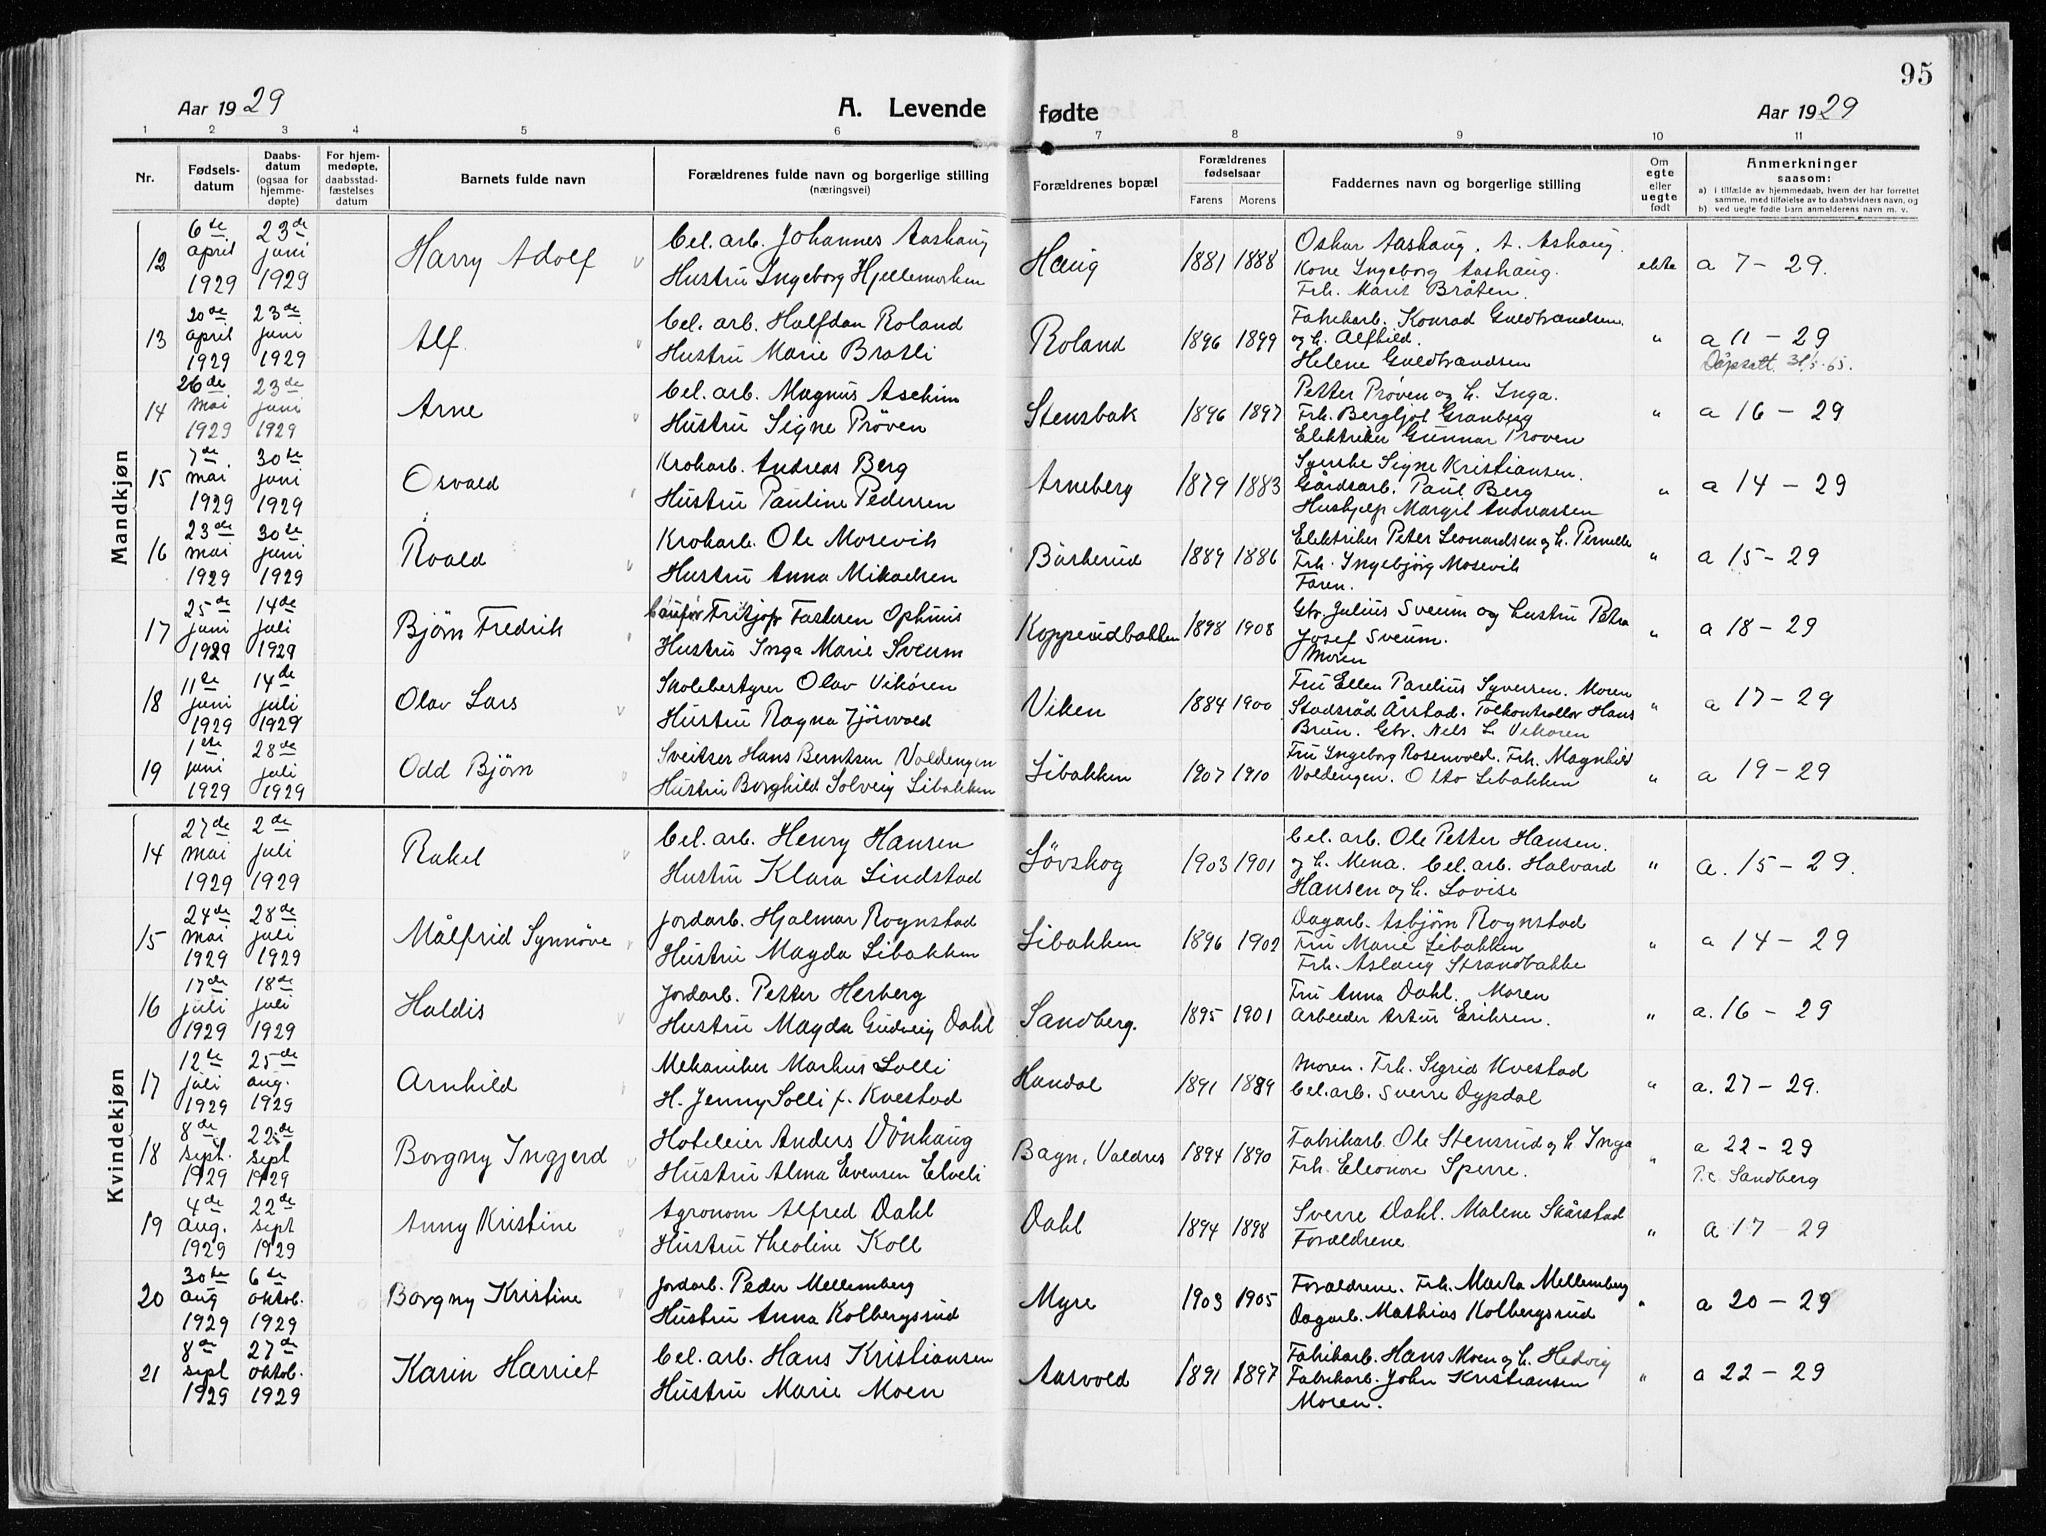 95
Aar 1929
A. Levende fødte
Aar 1929
1 2 3 4 5 6 7 8 9 10 11
Nr.
Fødsels-
datum
Daabs-
datum
(ogsaa for
hjemme-
døpte)
For hjem-
medøpte,
daabsstad-
fæstelses
datum
Barnets fulde navn
Forældrenes fulde navn og borgerlige stilling
(næringsvei)
Forældrenes bopæl
Forældrenes
fødselsaar
Farens Morens
Faddernes navn og borgerlige stilling
Om
egte
eller
uegte
født
Anmerkninger
saasom:
a) i tilfælde av hjemmedaab, hvem der har forrettet
samme, med tilføielse av to daabsvidners navn, og
b) ved uegte fødte barn anmelderens navn m. v.
Mandkjøn
12
6te april 1929
23de juni 1929
Harry Adolf
Cel. arb. Johannes Aashaug
Hustru Ingeborg Hjellemarken
Haug
1881 1888
Oskar Aashaug. A. Ashaug.
Kone Ingeborg Aashaug.
Frk. Marit Bråten.
ekte
a 7 - 29.
13
20de april 1929
23de juni 1929
Alf.
Cel. arb. Halfdan Roland
Hustru Marie Bratli
Roland
1896 1899
Fabrikarb. Konrad Guldbrandsen.
og h. Alfhild.
Helene Guldbrandsen
"
a 11 - 29
Dåpsatt. 31/5-65.
14
26de mai 1929
23de juni 1929
Arne
Cel. arb. Magnus Aschim
Hustru Signe Prøven
Stensbak
1896 1897
Petter Prøven og h. Inga.
Frk. Bergljot Granberg
Elektriker Gunnar Prøven
"
a 16 - 29
15
7de mai 1929
30te juni 1929
Osvald
Kroharb. Andreas Berg
Hustru Pauline Pedersen
Arneberg
1879 1883
Syerske Signe Kristiansen.
Gårdsarb. Paul Berg
Hushjelp Margit Andreassen
"
a 14 - 29
16
23de mai 1929
30te juni 1929
Roald
Kroharb. Ole Mosevik
Hustru Anna Mikaelsen
Båskerud
1889 1886
Elektriker Peter Leonardsen og h. Pernelle
Frk. Ingebjørg Mosevik
Faren.
"
a 15 - 29
17
25de juni 1929
14de juli 1929
Bjørn Fredrik
Fritjof Fastesen Ophuus
Hustru Inga Marie Sveum
Kopperudbakken
1898 1908
Gbr. Julius Sveum og hustru Petra
Josef Sveum.
Moren
"
a 18 - 29
18
11te juni 1929
14de juli 1929
Olav Lars
Skolebestyrer Olav Vikøren
Hustru Ragna Tjørvold
Viken
1884 1900
Fru Ellen Parelius Syversen. Moren
Stadsråd Årstad. Tolkontrollør Hans
Brun. Gbr. Nils L. Vikøren
"
a 17 - 29
19
1ste juni 1929
28de juli 1929
Odd Bjørn
Sveitser Hans Berntsen Voldengen
Hustru Borghild Solveig Libakken
Libakken
1907 1910
Fru Ingeborg Rosenvold. Frk. Magnhild
Voldengen. Otto Libakken
"
a 19 - 29
Kvindekjøn
14
27de mai 1929
2de juli 1929
Rakel
Cel. arb. Henry Hansen
Hustru Klara Lindstad
Løvskog
1903 1901
Cel. arb. Ole Petter Hansen.
og h. Mina. Cel. arb. Halvard
Hansen og h. Lovise
"
a. 15 - 29.
15
24de mai 1929
28de juli 1929
Målfrid Synnøve
Jordarb. Hjalmar Rognstad
Hustru Magda Libakken
Libakken
1896 1902
Dagarb. Asbjørn Rognstad
Fru Marie Libakken
Frk. Aslaug Strandbakke
"
a 14 - 29
16
17de juli 1929
18de juli 1929
Haldis
Jordarb. Petter Herberg
Hustru Magda Gudveig Dahl
Sandberg.
1895 1901
Fru Anna Dahl. Moren
Arbeider Artur Eriksen.
"
a. 16 - 29
17
12te juli 1929
25de aug. 1929
Arnhild
Mekaniker Markus Solli
H. Jenny Solli f. Kvestad
Handal
1891 1889
Moren. Frk. Sigrid Kvestad
Cel. arb. Sverre Dypdal
"
a. 27 - 29.
18
8de sept. 1929
22de sept 1929
Borgny Ingjerd
Hoteleier Anders Vønhaug
Hustru Alma Evensen Elveli
Bagn, Valdres
1894 1890
Fabrikarb. Ole Stensrud og h Inga
Frk. Eleonore Sperre.
"
a 22 - 29
P.c. Sandberg
19
4de aug. 1929
22de sept 1929
Anny Kristine
Agronom Alfred Dahl
Hustru Theoline Koll
Dahl
1894 1898
Sverre Dahl. Malene Skårstad
Forældrene
"
a 17 - 29
20
30te aug 1929
6te oktob. 1929
Borgny Kristine
Jordarb. Peder Mellemberg
Hustru Anna Kolbergsrud
Myre
1903 1905
Forældrene. Frk. Marta Mellemberg
Dagarb. Mathias Kolbergsrud
"
a 20 - 29
21
8de sept 1929
27de oktob. 1929
Karin Harriet
Cel. arb. Hans Kristiansen
Hustru Marie Moen
Aasvold
1891 1897
Fabrikarb. Hans Moen og h. Hedvig
Fabrikarb. John Kristiansen
Moren.
"
a 22 - 29